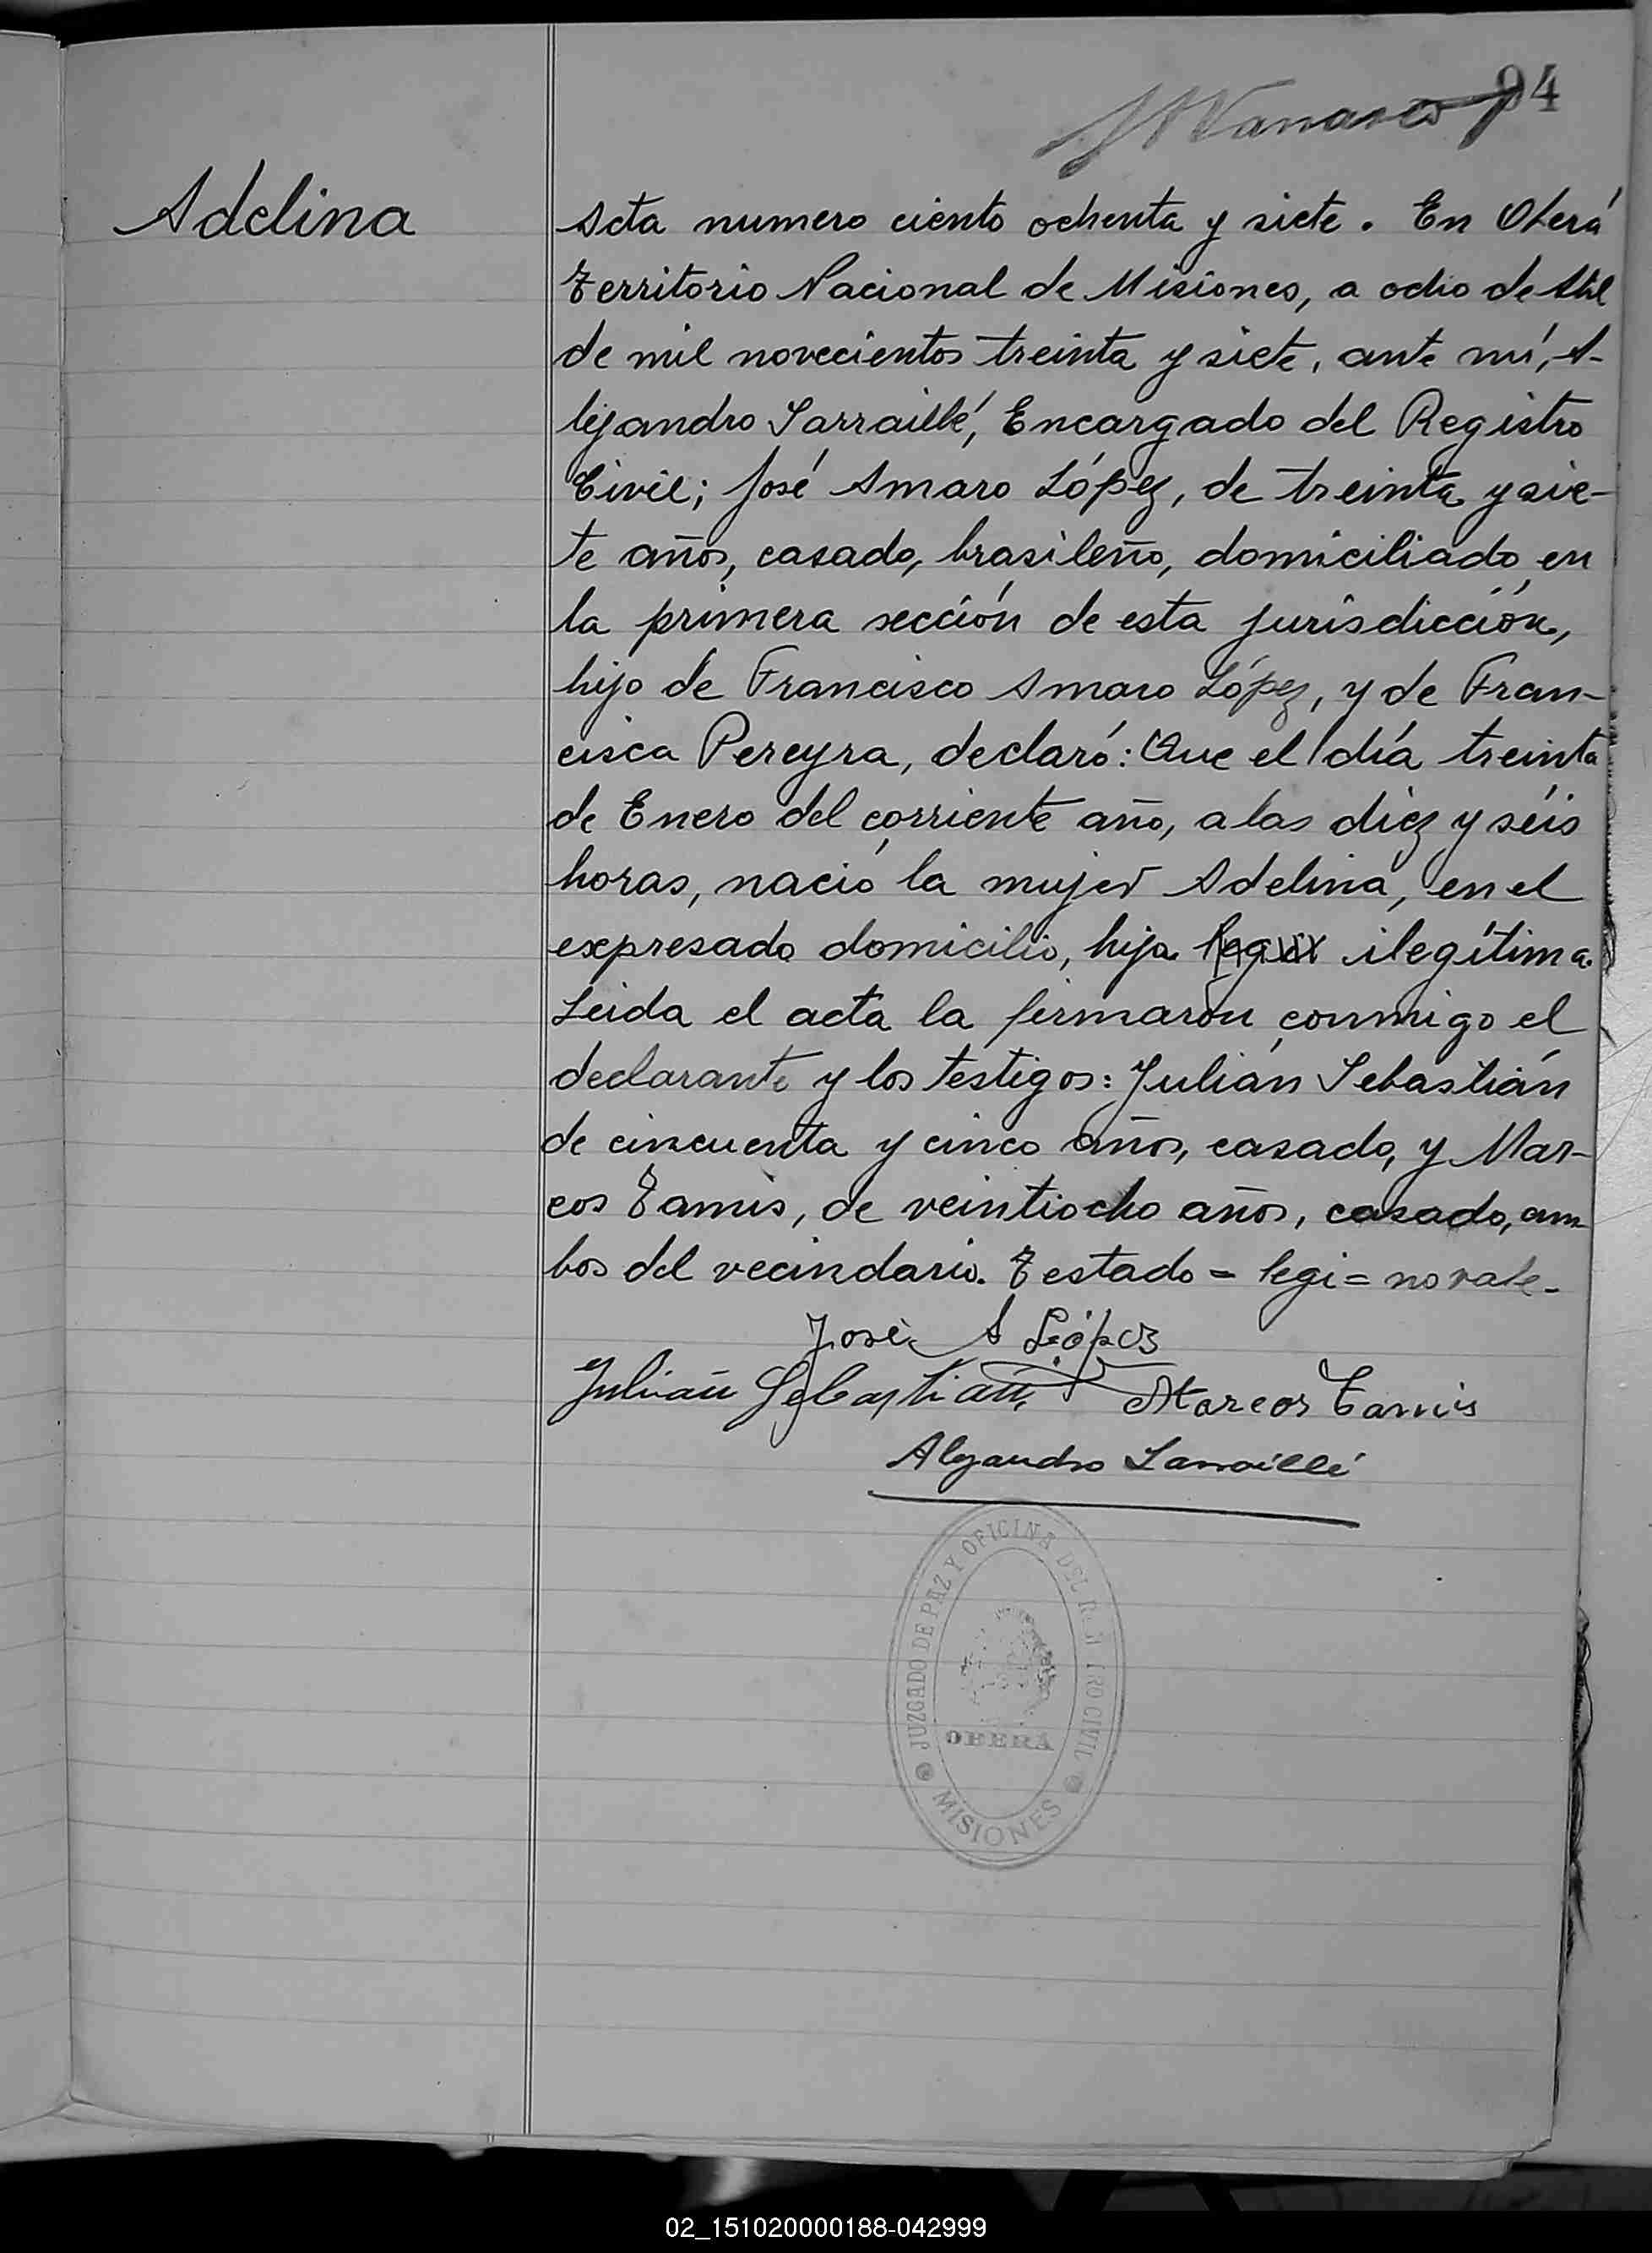 94
Adelina
Acta numero ciento ochenta y siete. En Oberá
Territorio Nacional de Misiones, a ocho de Abril
de mil novecientos treinta y siete, ante mí, A-
lejandro Sarraillé, Encargado del Registro
Civil; José Amaro López, de treinta y sie-
te años, casado, brasileño, domiciliado en
la primera sección de esta jurisdicción,
hijo de Francisco Amaro López, y de Fran-
cisca Pereyra, declaró: Que el día treinta
de Enero del corriente año, a las diez y séis
horas, nació la mujer Adelina, en el
expresado domicilio, hija ilegítima.
Leida el acta la firmaron conmigo el
declarante y los testigos: Julián Sebastián
de cincuenta y cinco años, casado, y Mar-
cos Tamis, de veintiocho años, casado, am
bos del vecindario. Testado = legi = no vale-
José A López
Julián Sebastian Marcos Tamis
Alejandro Sarraillé
JUZGADO DE PAZ Y OFICINA DEL REGISTRO CIVIL
OBERÁ
MISIONES
02_151020000188-042999